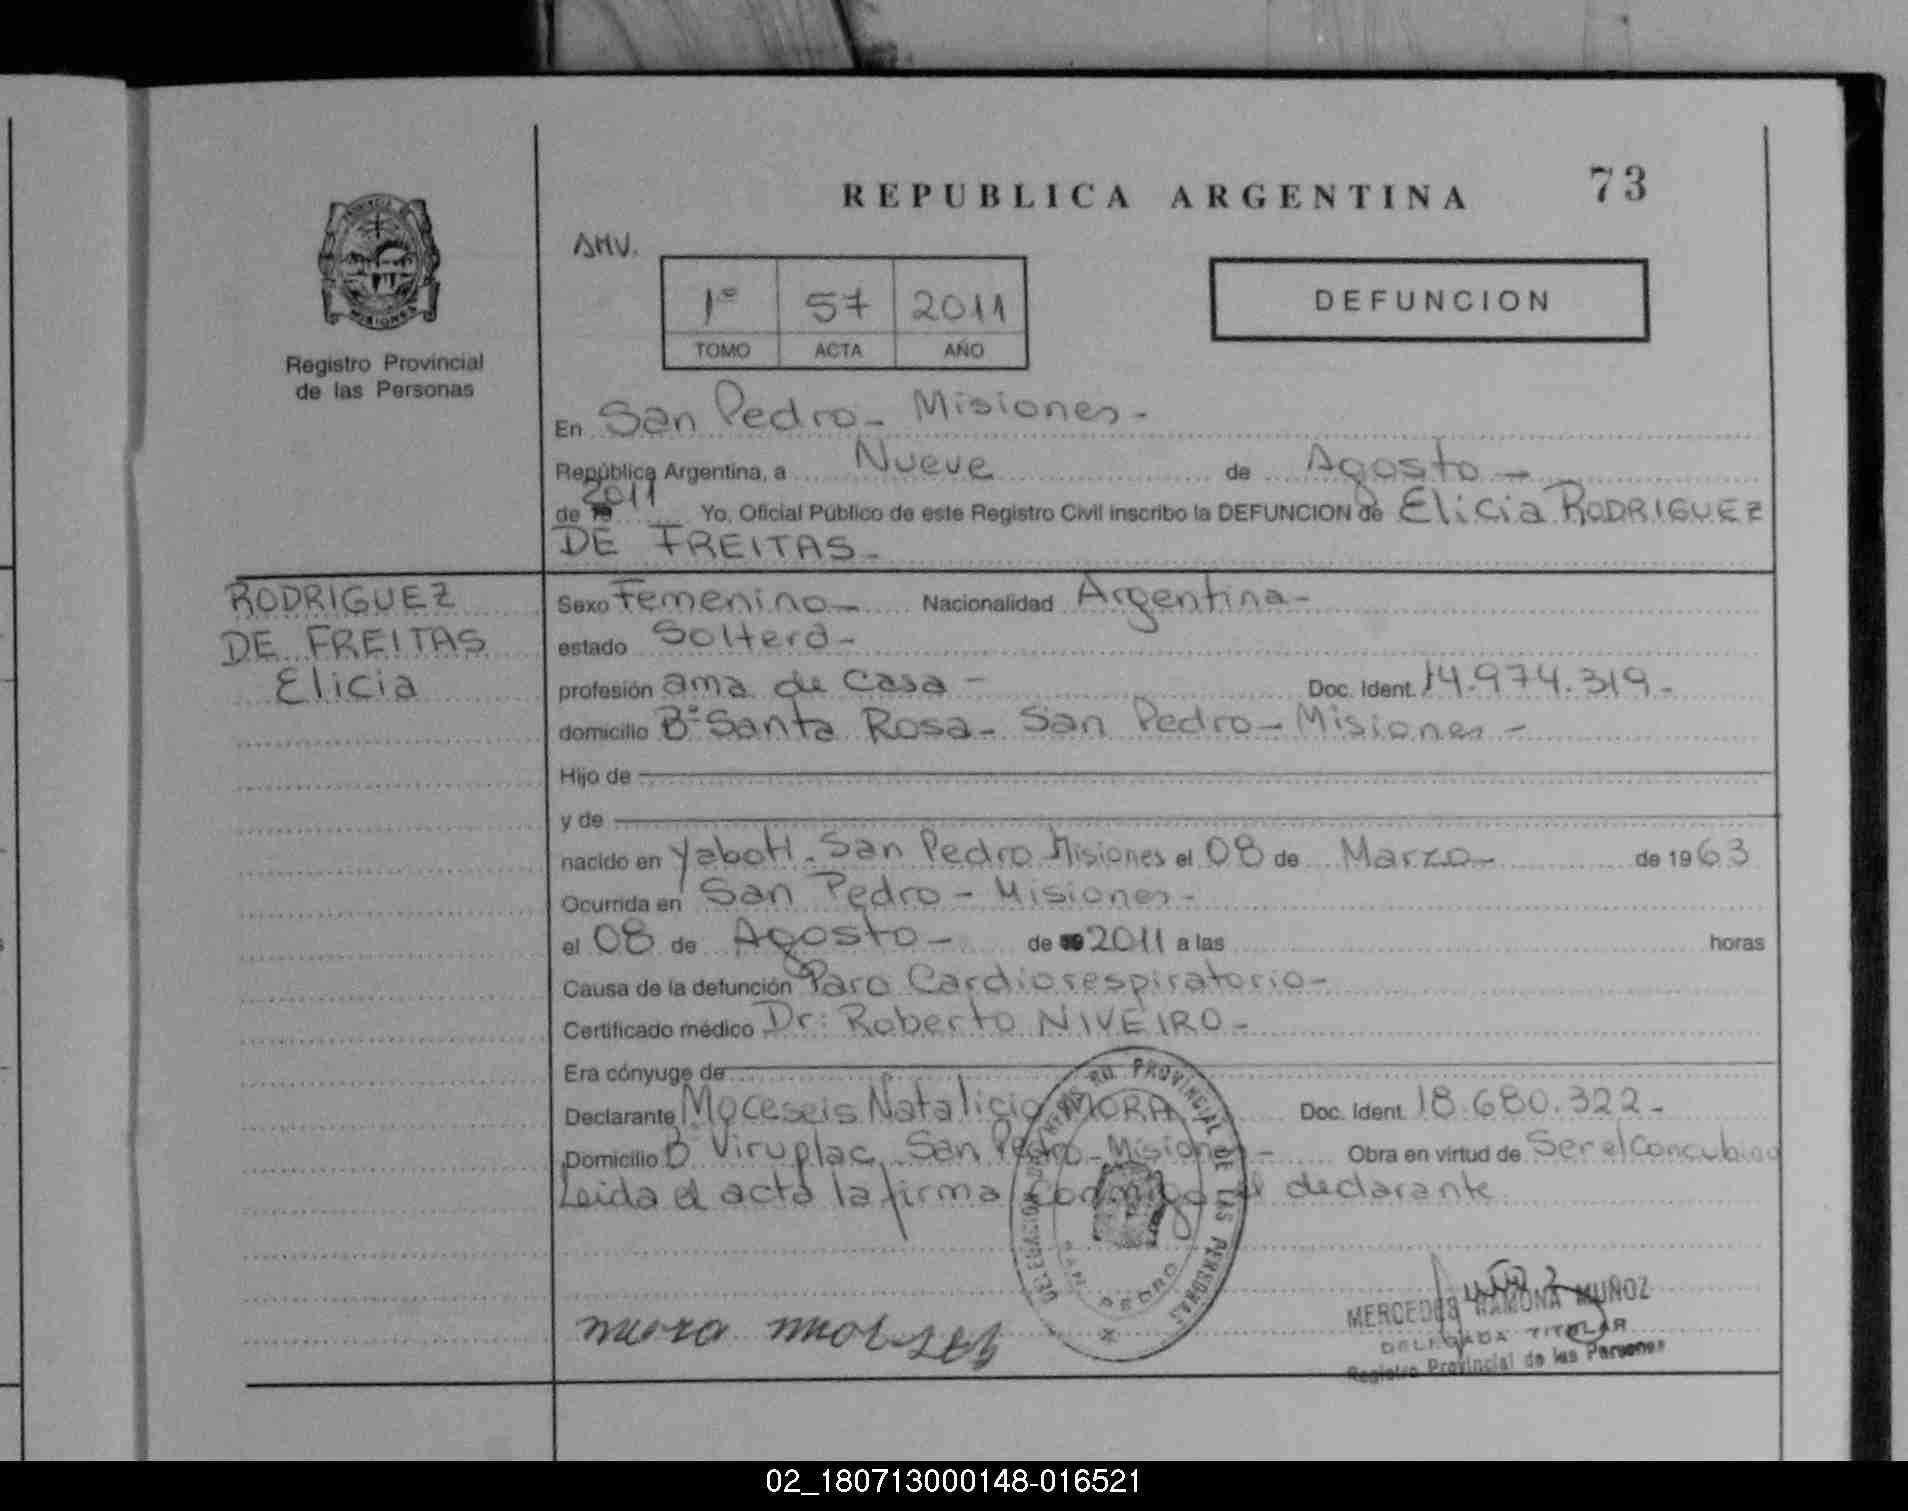 REPUBLICA ARGENTINA 73
AMV.
1º 57 2011
TOMO ACTA AÑO
DEFUNCION
MISIONES
Registro Provincial
de las Personas
En San Pedro - Misiones -
República Argentina, a Nueve de Agosto -
de 2011 Yo, Oficial Público de este Registro Civil inscribo la DEFUNCION de Elicia RODRIGUEZ
DE FREITAS -
RODRIGUEZ
DE FREITAS
Elicia
Sexo Femenino - Nacionalidad Argentina -
estado Soltera -
profesión ama de casa - Doc. Ident. 14.974.319 -
domicilio Bº Santa Rosa - San Pedro - Misiones -
Hijo de
y de
nacido en Yabotí - San Pedro Misiones el 08 de Marzo - de 1963
Ocurrida en San Pedro - Misiones -
el 08 de Agosto - de 2011 a las horas
Causa de la defunción Paro Cardiorespiratorio -
Certificado médico Dr: Roberto NIVEIRO -
Era cónyuge de
Declarante Moceseis Natalicio MORA Doc. Ident. 18.680.322 -
Domicilio Bº Viruplac, San Pedro - Misiones - Obra en virtud de Ser el Concubino
Leida el acta la firma conmigo el declarante
PROVINCIAL DE LAS PERSONAS
SAN PEDRO
MERCEDES RAMONA MUÑOZ
DELEGADA TITULAR
Registro Provincial de las Personas
02_180713000148-016521